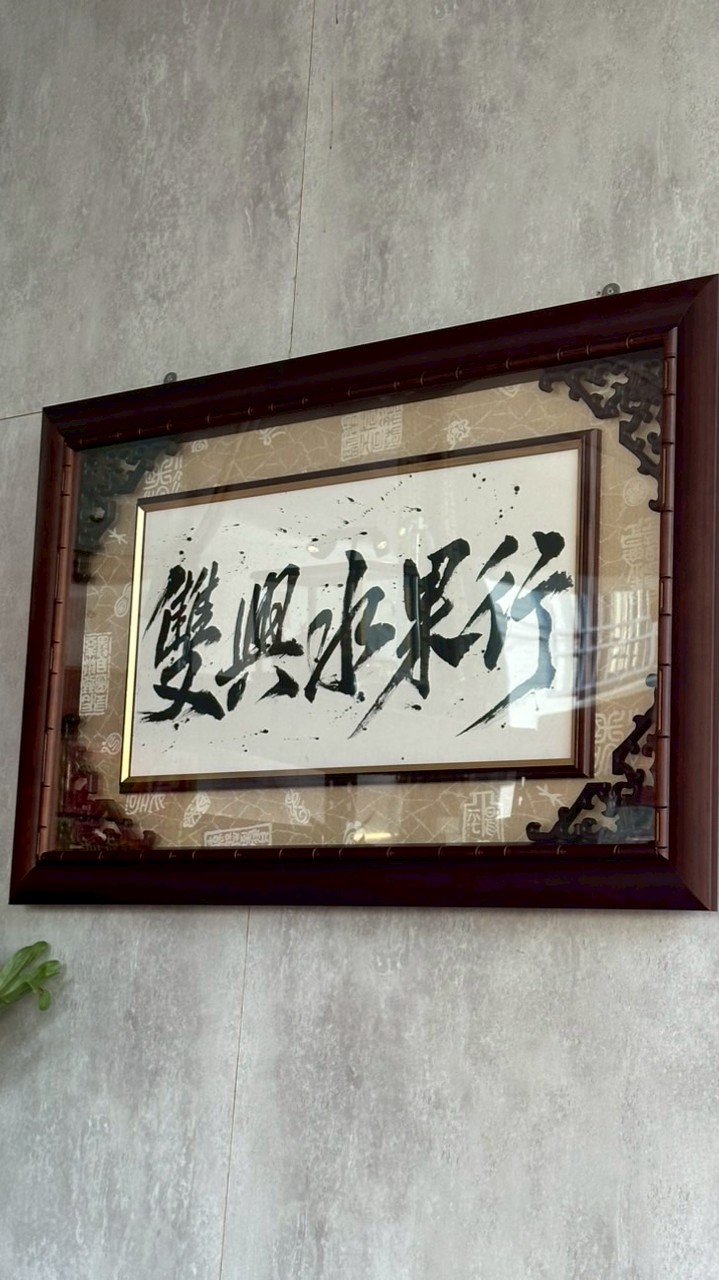 雙興水果行